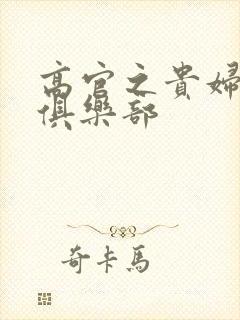 高官之貴婦
俱樂部
奇卡馬